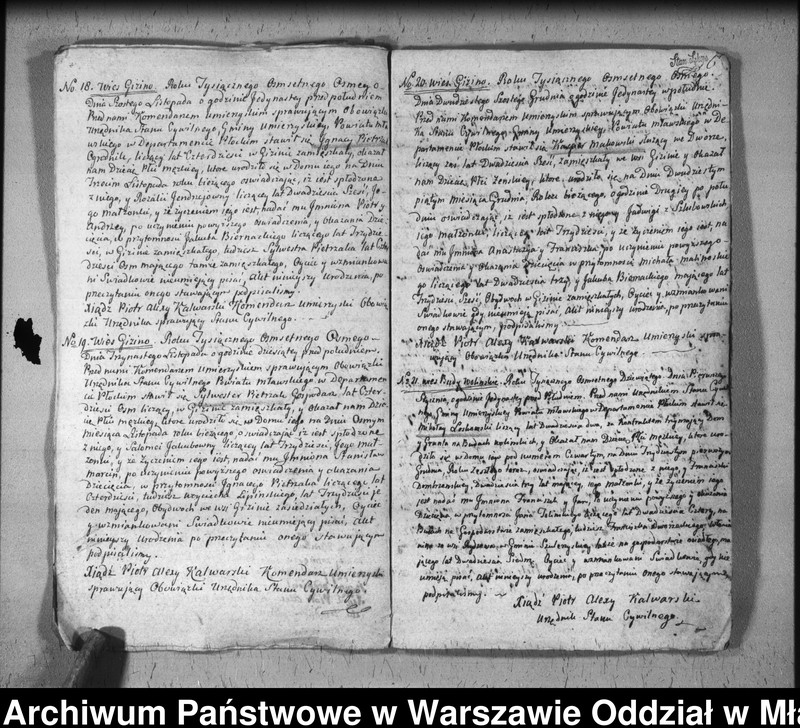 No 18. Wieś Gizino. Roku Tysiącznego Osmsetnego Osmego
Dnia Szostego Listopada o godzinie Jedynastey przed południem
Przed nami Komendarzem Umierzyskim sprawującym Obowiązki
Urzędnika Stanu Cywilnego Gminy Umierzyskiey, Powiatu Mła-
wskiego w Departamencie Płockim stawił się Ignacy Pietrzak
liczący lat Czterdzieści w Gizinie zamieszkały, okazał
nam Dziecię Płci męzkiey, ktore urodziło się w Domu iego na Dniu
Trzecim Listopada roku bieżącego oświadczając, iż iest spłodzone
z niego, y Rozalii Jendrzejowny liczącey lat Dwadzieścia Sześć, Je-
go małżonki, y że życzeniem iego iest nadać mu Jmniona Piotr y
Andrzey, po uczynieniu powyższego oświadczenia, y okazania Dzie-
cięcia, w przytomności Jakuba Biernackiego liczącego lat Trzydzie-
ści, w Gizinie zamieszkałego, tudzież Sylwestra Pietrzaka lat Czter-
dzieści Osm mającego tamże zamieszkałego, Oycieć y wzmiankowa-
ni Swiadkowie nieumiejący pisać, Akt ninieyszy Urodzenia, po
przeczytaniu onego stawającym podpisalismy.
Xiądz Piotr Alexy Kalwarski Komendarz Umierzyski Obowią-
zki Urzędnika sprawujący Stanu Cywilnego.
No 19. Wieś Gizino. Roku Tysiącznego Osmsetnego Osmego
Dnia Trzynastego Listopada o godzinie dziesiątey przed południem.
Przed nami Komendarzem Umierzyskim sprawującym Obowiązki
Urzędnika Stanu Cywilnego Powiatu Mławskiego w Departamen-
cie Płockim stawił się Sylwester Pietrzak Gospodarz lat Czter-
dzieści Osm liczący, w Gizinie zamieszkały, y okazał nam Dzie-
cię Płci męzkiey, ktore urodziło się w Domu iego na dniu Osmym
Miesiąca Listopada roku bieżącego, oświadczając iż iest spłodzone
z niego, y Salomei Jakubowny liczącey lat Trzydzieści, Jego mał-
żonki, y że życzeniem iego iest nadać mu Jmniona Stanisław
Marcin, po uczynieniu powyższego oświadczenia y okazania
Dziecięcia, w przytomności Ignacego Pietrzaka liczącego lat
Czterdzieści, tudzież Woyciecha Lipinskiego, lat Trzydzieści je-
den mającego, Obydwoch we wsi Gizinie zasiedziałych, Oycieć
y wzmiankowani Swiadkowie nieumiejący pisać, Akt
ninieyszy Urodzenia po przeczytaniu onego Stawającym
podpisalismy.
Xiądz Piotr Alexy Kalwarski Komendarz Umierzyski
sprawujący Obowiązki Urzędnika Stanu Cywilnego.
No 20. Wieś Gizino. Roku Tysiącznego Osmsetnego Osmego.
Dnia Dwudziestego Szostego Grudnia o godzinie Jedynastey w południe.
Przed nami Komendarzem Umierzyskim sprawującym Obowiązki Urzędni-
ka Stanu Cywilnego Gminy Umierzyskiey, Powiatu Mławskiego w De-
partamencie Płockim stawił się Kacper Makowski służący we Dworze,
liczący zaś lat Dwadzieścia Sześć, zamieszkały we wsi Gizinie, y okazał
nam Dziecię Płci Zeńskiey, ktore urodziło się na Dniu Dwudziestym
piątym miesiąca Grudnia, Roku bieżącego, o godzinie Drugiey po połu-
dniu oświadczając, iż iest spłodzone z niego y Jadwigi z
iego małżonki, liczącey lat Trzydzieści, y że życzeniem iego iest, na-
dać mu Jmniona Anastazya y Franciszka, po uczynieniu powyższego
Oswiadczenia y Okazania Dziecięcia w przytomności Michała Malinoskie-
go liczącego lat Dwadzieścia trzy, y Jakuba Biernackiego mającego lat
Trzydzieści Sześć, Obydwoch w Gizinie zamieszkałych, Oycieć y wzmiankowani
Swiadkowie gdy nieumieją pisać, Akt ninieyszy Urodzenia, po przeczytaniu
onego stawającym, podpisalismy.
Xiądz Piotr Alexy Kalwarski Komendarz Umierzyski spra-
wujący Obowiązki Urzędnika Stanu Cywilnego
No 21. Roku Tysiącznego Osmsetnego Dziewiątego, Dnia Pierwszego
Stycznia, o godzinie przed Południem. Przed nami Urzędnikiem Stanu Cywil-
nego Gminy Umierzyskiey Powiatu Mławskiego w Departamencie Płockim stawił się
Mikołay liczący lat Dwadzieścia dwa, za Kontraktem trzymający Dom
y Grunta na Budach y Okazał nam Dziecię Płci męzkiey, ktore uro-
dziło się w domu iego pod numerem Czwartym, na Dniu Trzydziestym pierwszym
Grudnia, Roku Zeszłego, oświadczając, iż iest spłodzone z niego, y Franciszki
Dombrowskiey, Dwadzieścia trzy lat mającey, iego małżonki, y że życzeniem iego
iest nadać mu Jmniona Franciszek y Jan, Po uczynieniu powyższego y okazania
Dziecięcia w przytomności Jana liczącego lat Dwadzieścia Cztery, na
Budach na Gospodarstwie zamieszkałego, tudzież
w Gminie także na gospodarstwie ma-
jącego lat Dwadzieścia Siedm, Oycieć y wzmiankowani Swiadkowie gdy nie
umieją pisać, Akt ninieyszy urodzenia, po przeczytaniu onego stawającym
podpisalismy.
Xiądz Piotr Alexy Kalwarski
Urzędnik Stanu Cywilnego.
Archiwum Państwowe w Warszawie Oddział w Mła